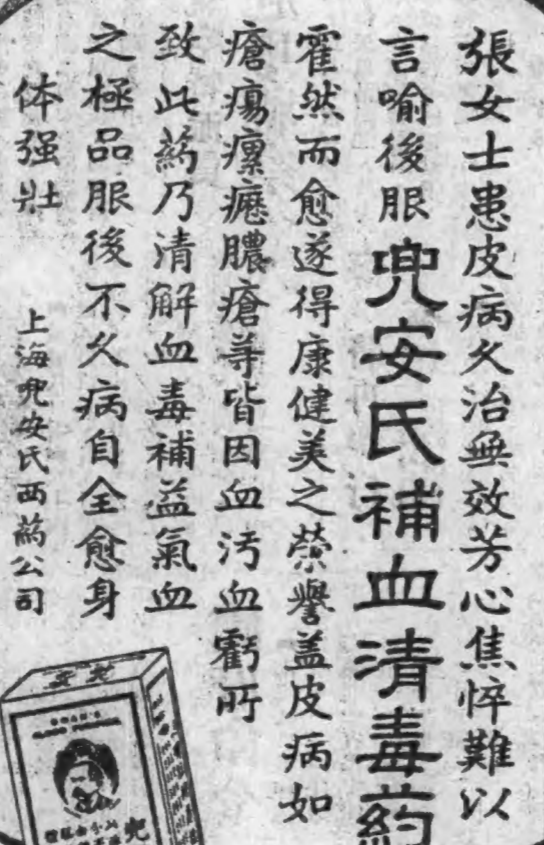 張女士患皮病久治無效芳心焦悴難以
言喻後服兜安氏補血清毒药
霍然而愈遂得康健美之榮譽盖皮病如
瘡瘍瘰癧膿瘡等皆因血污血虧所
致此葯乃清解血毒補益氣血
之極品服後不久病自全愈身
体强壯
上海兜安氏西葯公司
兜安
兜